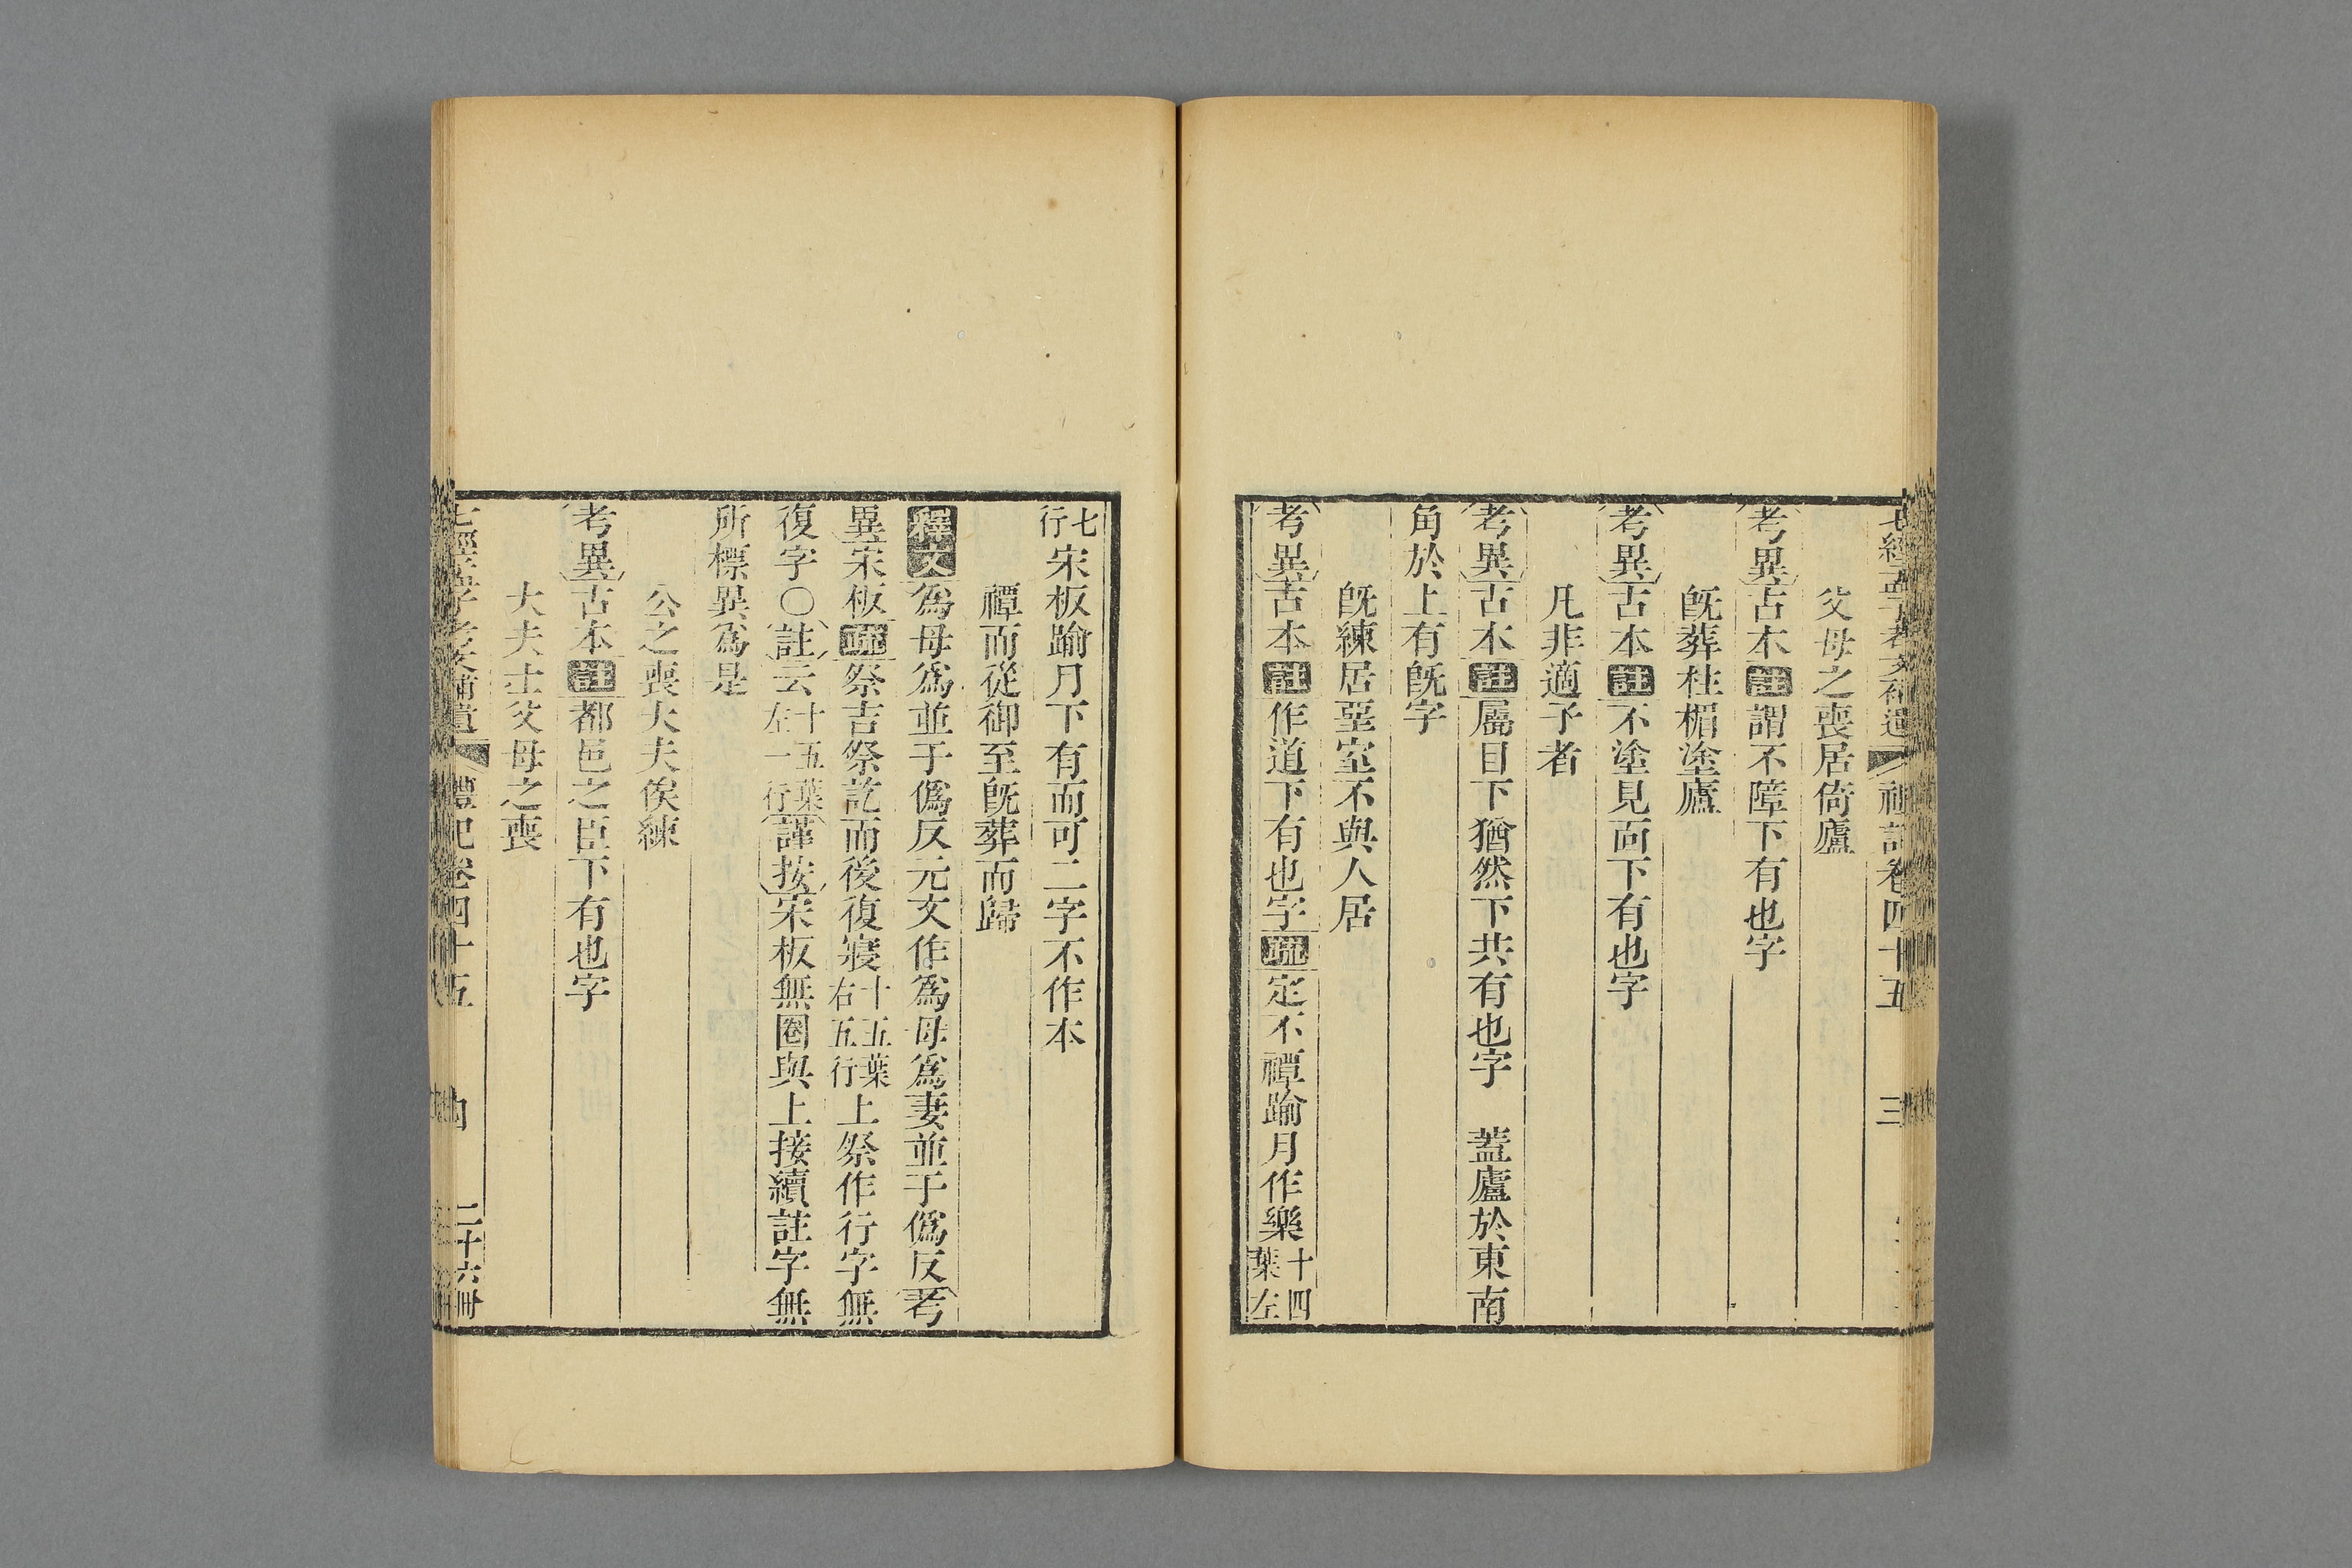 七經孟子考文補遺 禮記卷四十五 三
父母之喪居倚廬
考異古本註謂不障下有也字
旣葬柱楣塗廬
考異古本註不塗見面下有也字
凡非適子者
考異古本註屬目下猶然下共有也字 蓋廬於東南
角於上有旣字
旣練居堊室不與人居
考異古本註作道下有也字疏定不禫踰月作樂十四葉左
七行宋板踰月下有而可二字不作本
禫而從御至旣葬而歸
釋文爲母爲並于僞反元文作爲母爲妻並于僞反考
異宋板疏祭吉祭訖而後復寢十五葉右五行上祭作行字無
復字〇註云十五葉左一行謹按宋板無圈與上接續註字無
所標異爲是
公之喪大夫俟練
考異古本註都邑之臣下有也字
大夫士父母之喪
七經孟子考文補遺 禮記卷四十五 四 二十六冊